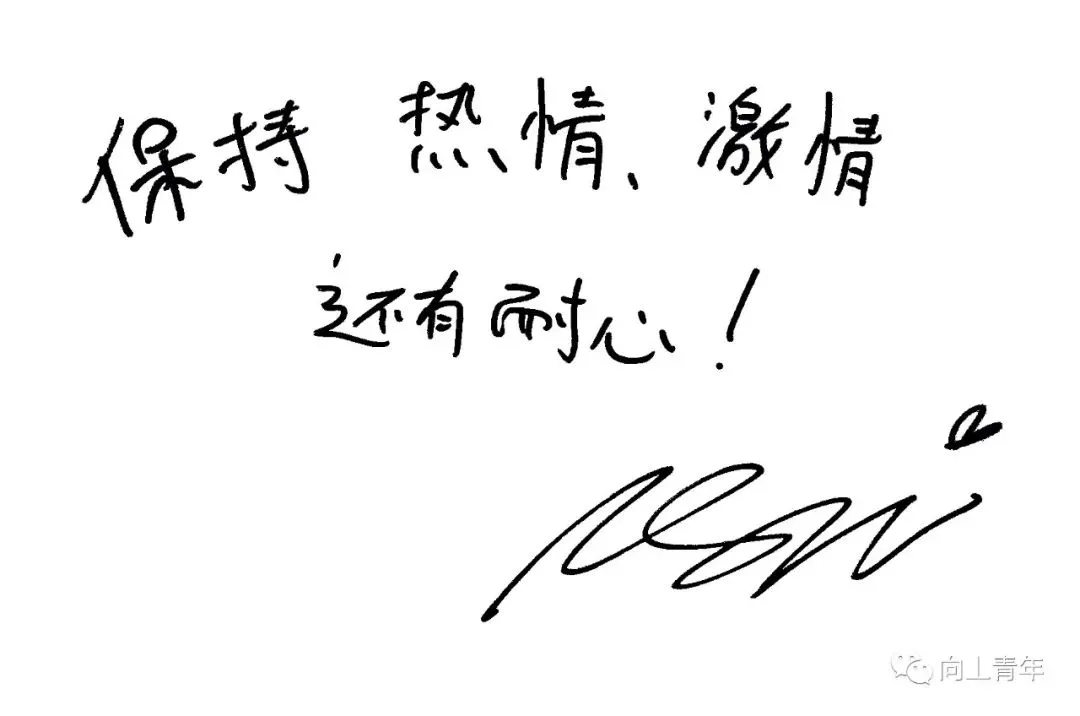 保持 热情、激情
还有耐心！
向上青年